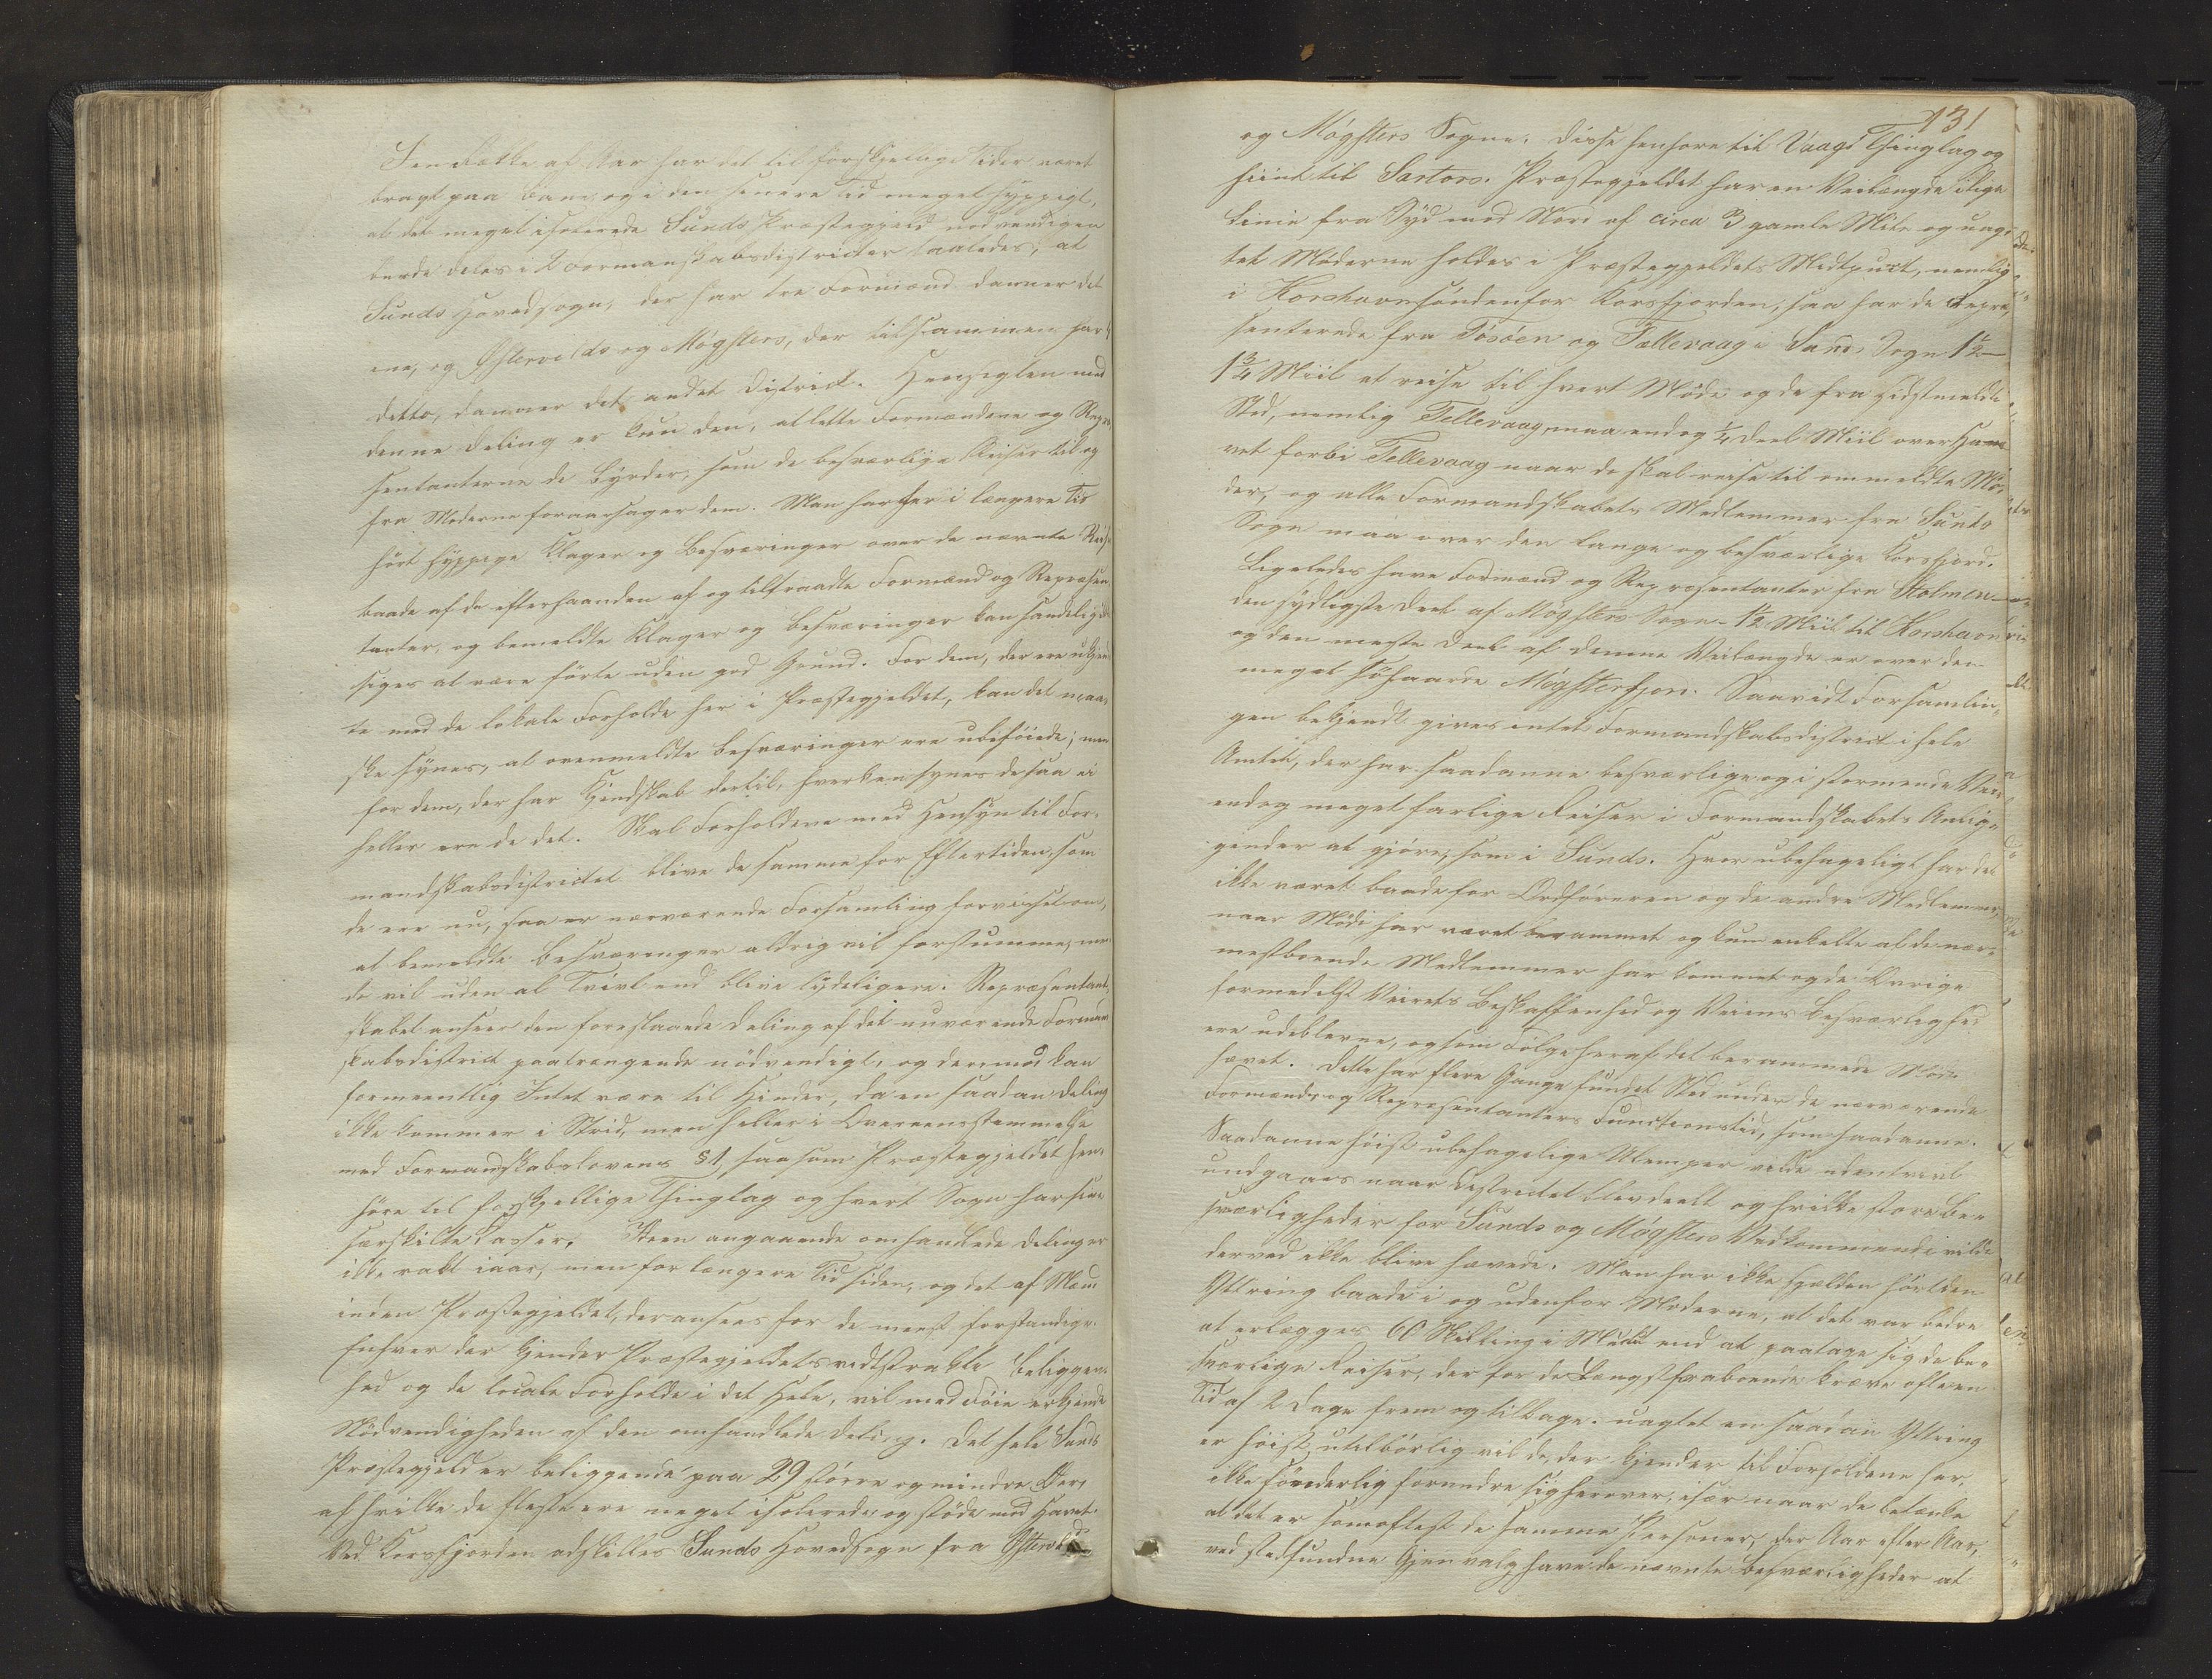 I en Række af Aar har det til forskjellige Tider været
bragt paa Bane, og i den senere Tid meget hyppigt,
at det meget isolerede Sunds Præstegjeld nødvendigen
burde deles i 2 Formandskabsdistricter saaledes, at
Sunds Hovedsogn, der har tre Formænd danner det
ene, og Østervolds og Møgsters, der tilsammen har
detto, danner det andet District. Hensigten med
denne Deling er kun den, at lette Formændene og Repræ
sentanterne de Byrder, som de besværlige Reiser til og
fra Møderne foraarsager dem. Man har her i længere Tid
hørt hyppige Klager og Besværinger over de nævnte Reiser
baade af de efterhaanden af og tiltraadte Formænd og Repræsen
tanter, og bemeldte Klager og Besværinger kan sandelig ikke
siges at være førte uden god Grund. For dem, der ere ukjend
te med de lokale Forholde her i Præstegjeldet, kan det maa
ske synes, at ovenmeldte Besværinger ere ubeføiede; men
for dem, der har Kjendskab dertil, hverken synes de saa ei
heller ere de det. Skal Forholdene med Hensyn til For-
mandskabsdistrictet blive de samme for Eftertiden, som
de ere nu, saa er nærværende Forsamling forvisset om,
at bemeldte Besværinger aldrig vil forstumme, men
de vil uden al Tvivl end blive lydeligere. Repræsentant
skabet anseer den foreslaaede Deling af det nuværende Formand
skabsdistrict paatrængende nødvendigt, og derimod kan
formeentlig Intet være til Hinder, da en saadan Deling
ikke kommer i Strid, men heller i Overeensstemmelse
med Formandskabslovens § 1, saasom Præstegjeldet hen-
høre til forskjellige Thinglag og hvert Sogn har sine
særskilte Kasser. Ideen angaaende omhandlede Deling er
ikke vakt iaar, men for længere Tid siden, og det af Mænd
inden Præstegjeldet, der ansees for de meest forstandige.
Enhver der kjender Præstegjeldets vidtstrakte Beliggen-
hed og de locale Forholde i det Hele, vil med Føie erkjende
Nødvendigheden af den omhandlede Deling. Det hele Sunds
Præstegjeld er beliggende paa 29 større og mindre Øer,
af hvilke de fleste ere meget isolerede og støde mod Havet.
Ved Korsfjorden adskilles Sunds Hovedsogn fra Østervolds
131
og Møgsters Sogne. Disse henhøre til Vaags Thinglag og
hiint til Sartors. Præstegjeldet har en Veilængde i lige
Linie fra Syd mod Nord af circa 3 gamle Mile og uag-
tet Møderne holdes i Præstegjeldets Midtpunt, nemlig
i Korshavn søndenfor Korsfjorden, saa har de Repræ
senterede fra Tøsøen og Tellevaag i Sunds Sogn 1½ —
1¾ Miil at reise til hvert Møde og de fra sidstmeldte
Sted, nemlig Tellevaag, maa endog ¼ Deel Miil over Ha
vet forbi Tellevaag naar de skal reise til ommeldte Mø-
der, og alle Formandskabets Medlemmer fra Sunds
Sogn maa over den lange og besværlige Korsfjord.
Ligeledes have Formænd og Repræsentanter fra Stolmen —
den sydligste Deel af Møgsters Sogn — 1½ Miil til Korshavn
og den meste Deel af denne Veilængde er over den
meget søhaarde Møgsterfjord. Saavidt Forsamlin-
gen bekjendt gives intet Formandskabsdistrict i hele
Amtet, der har saadanne besværlige og i stormende Veir
endog meget farlige Reiser i Formandskabets Anlig-
gender at gjøre, som i Sunds. Hvor ubehageligt har det
ikke været baade for Ordføreren og de andre Medlemmer,
naar Møde har været berammet og kun enkelte af de nær-
mestboende Medlemmer har kommet og de Øvrige
formedelst Veirets Beskaffenhed og Veiens Besværlighed
ere udeblevne, og som Følge heraf det berammede Møde
hævet. Dette har flere Gange fundet Sted under de nærværende
Formænds og Repræsentanters Functionstid, som saadanne.
Saadanne høist ubehagelige Ulemper vilde udentvivl
undgaaes naar Districtet blev deelt og hvilke store Be-
sværligheder for Sunds og Møgsters Vedkommende vilde
derved ikke blive hævede. Man har ikke sjælden hørt den
Yttring baade i og udenfor Møderne, at det var bedre
at erlægge 60 Skilling i Mulct end at paatage sig de be-
sværlige Reiser, der for de Længstfraboende kræve ofte en
Tid af 2 Dage frem og tilbage. uagtet en saadan Yttring
er høist utilbørlig vil de, der kjender til Forholdene her,
ikke sønderlig forundre sig herover, især naar de betænke
at det er somoftest de samme Personer, der Aar efter Aar,
ved stedfundne Gjenvalg have de nævnte Besværligheder at